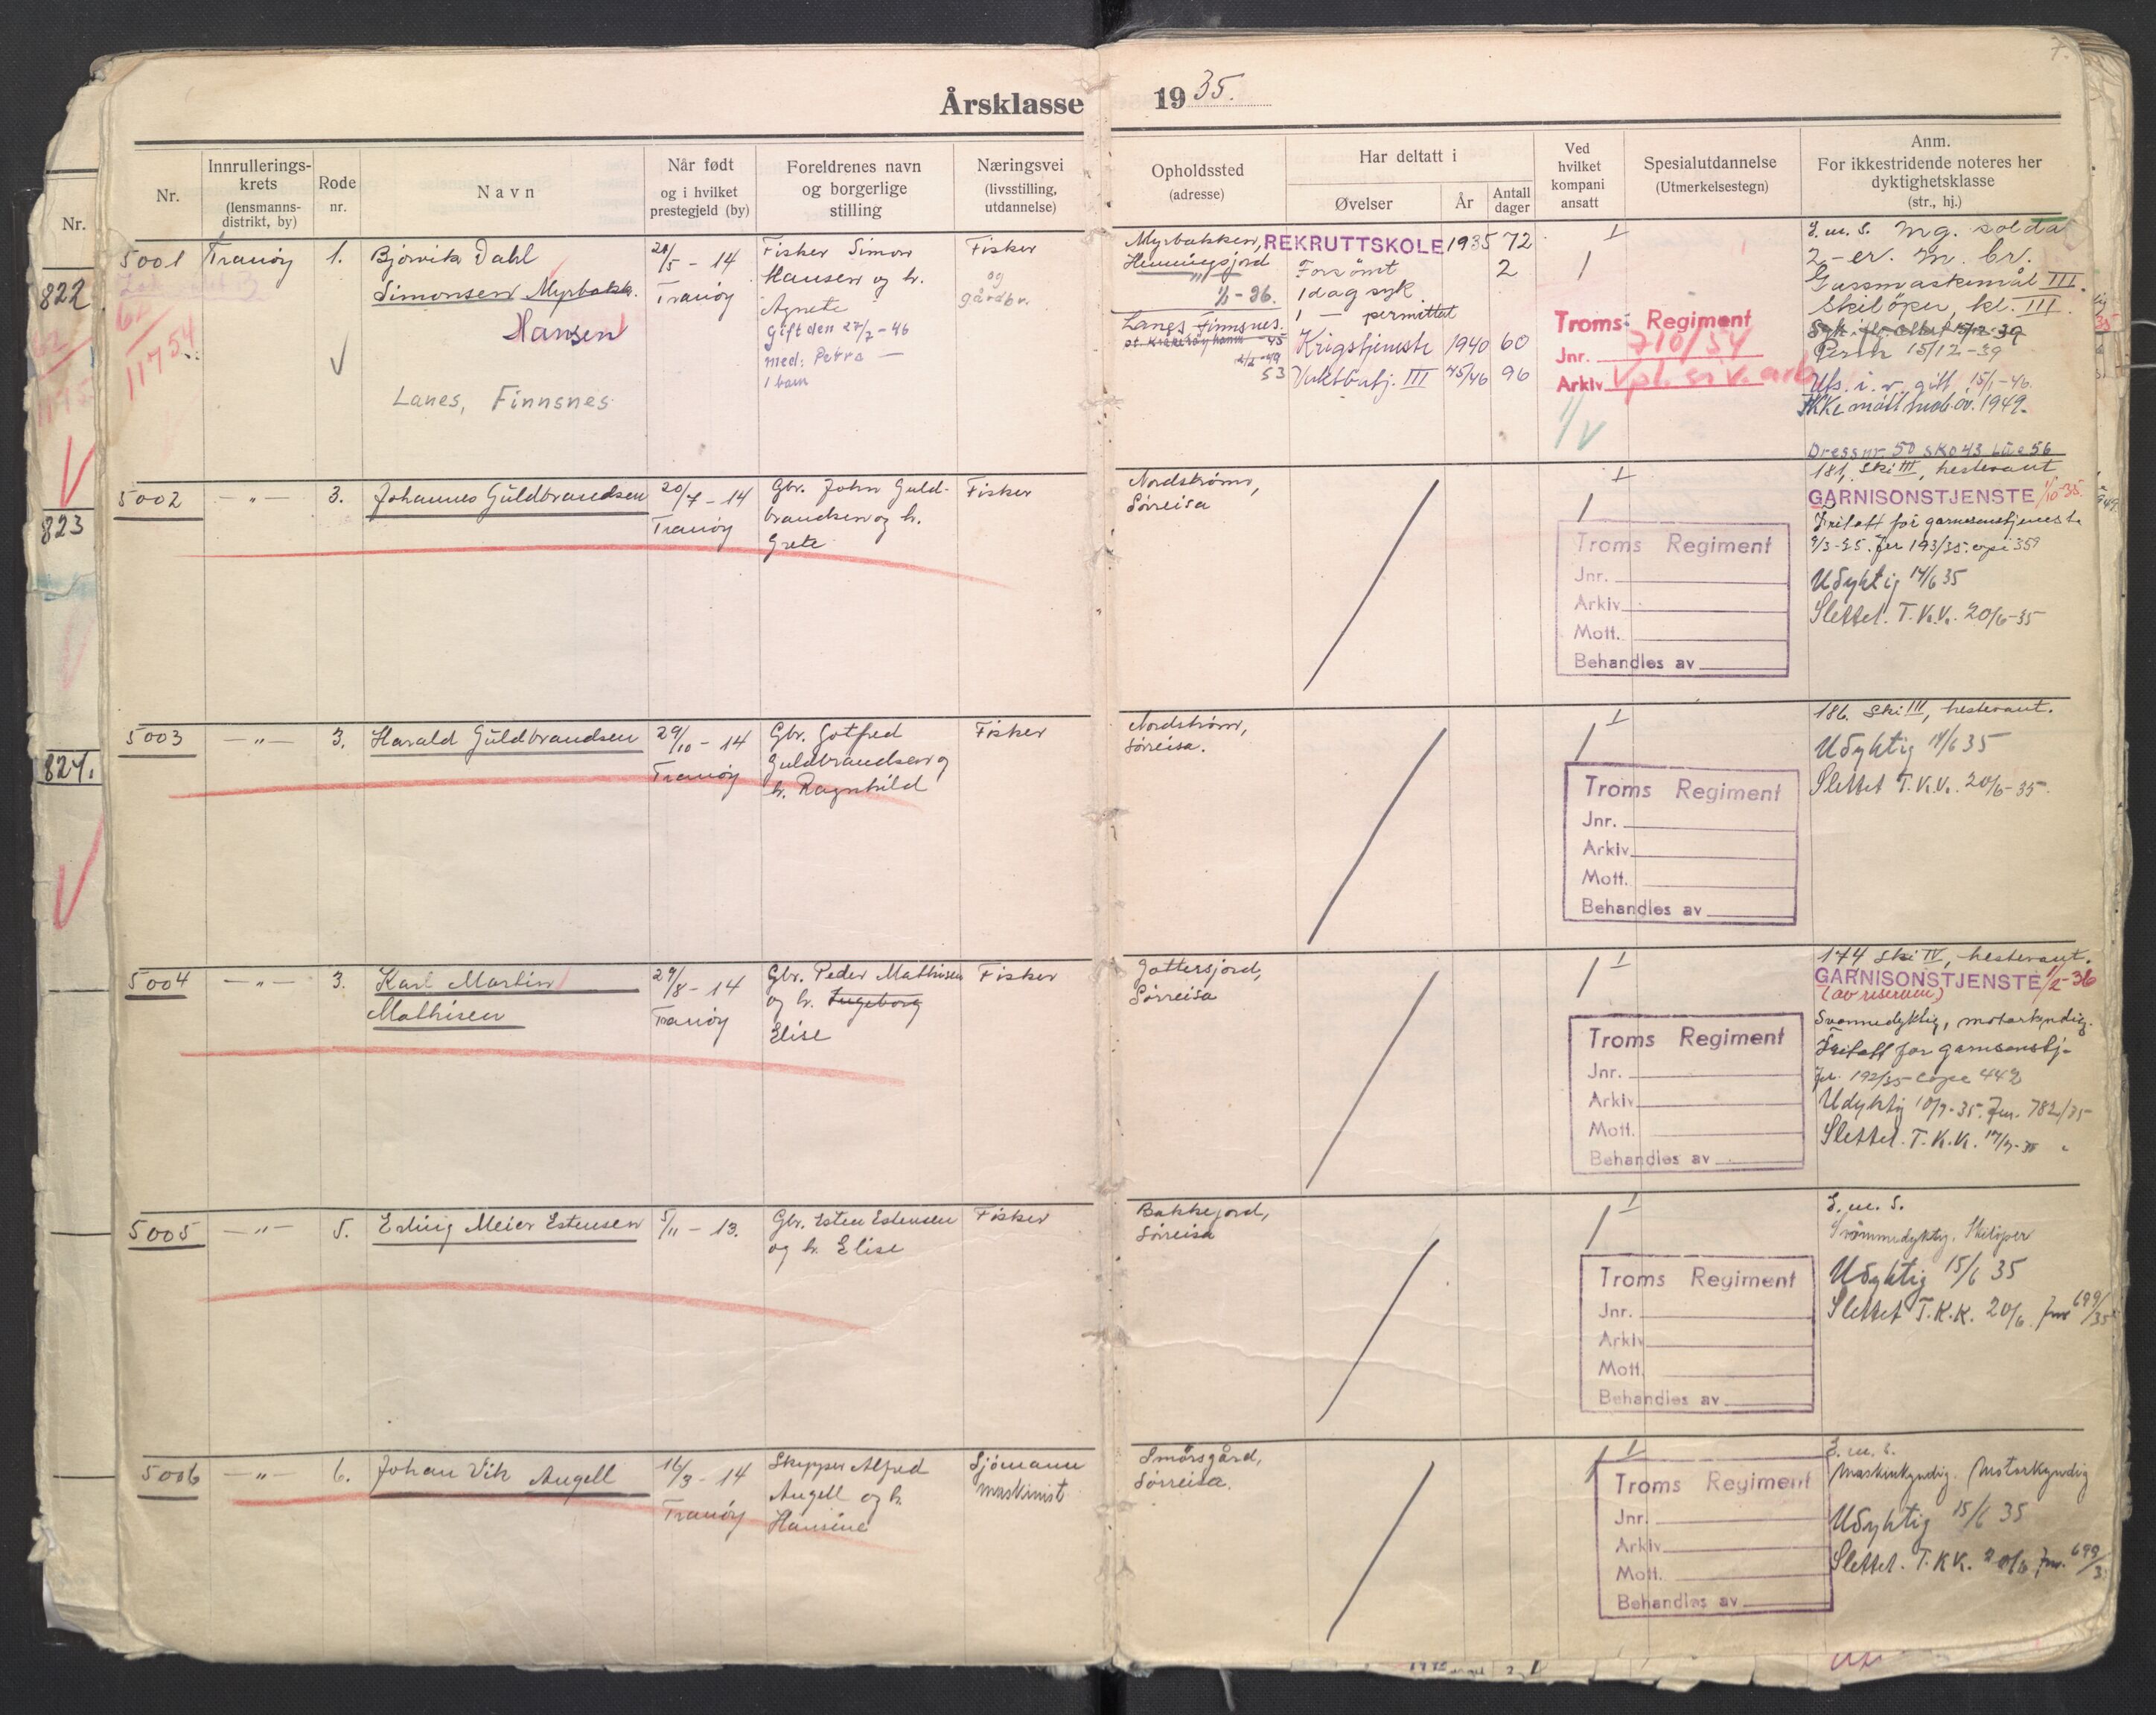 Årsklasse 1935.
Nr.
Innrullerings-
krets
(lensmanns-
distrikt, by)
Rode
nr.
Navn
Når født
og i hvilket
prestegjeld (by)
Foreldrenes navn
og borgerlige
stilling
Næringsvei
(livsstilling,
utdannelse)
Opholdssted
(adresse)
Har deltatt i
Øvelser
År
Antall
dager
Ved
hvilket
kompani
ansatt
Spesialutdannelse
(Utmerkelsestegn)
Anm.
For ikkestridende noteres her
dyktighetsklasse
(str., hj.)
Nr.
822
823
824.
5001 Tranöy 1.
Bjørvik Dahl
Simonsen Myrbakk.
Hansen
Lanes, Finnsnes
20/5 - 14
Tranöy
Fisker Simon
Hansen og h.
Agnete
gift den 27/7 - 46
med: Petra —
1 barn
Fisker
og
gårdbr.
11754
Myrbakken,
Henningsjord
1/1 - 36.
Lanes Finnsnes.
53
REKRUTTSKOLE 1935 72
Forsömt 2
1 dag syk
1 — permittert
Krigstjeneste 1940 60
III 45/46 96
Troms Regiment
Jnr. 710/54
Arkiv
I
S.m.S. Mg. soldat
2-er. m. br.
Gassmaskemål III.
Skilöper, kl. III.
15/12 - 39
15/1 - 46.
Ikke mött mob.öv. 1949.
Dressnr. 50 sko 43 lue 56
5002 —"— 3.
Johannes Guldbrandsen
20/7 - 14
Tranöy
Gbr. John Guld-
brandsen og h.
Grete
Fisker
Nordstrøm,
Sørreisa
I
Troms Regiment
Jnr.
Arkiv
Mott.
Behandles av
181, Ski III, hestevant
GARNISONSTJENSTE 1/10-35.
Fritatt for garnisonstjeneste
Udyktig 14/6 35
Slettet. T.K.K. 20/6-35
5003 —"— 3.
Harald Guldbrandsen
29/10 - 14
Tranöy
Gbr. Gotfred
Guldbrandsen og
h. Ragnhild
Fisker
Nordstrøm,
Sørreisa.
I
Troms Regiment
Jnr.
Arkiv
Mott.
Behandles av
186. Ski III, hestevant.
Udyktig 14/6 35
Slettet T.K.K. 20/6-35.
5004 —"— 3.
Karl Martin
Mathisen
29/8 - 14
Tranöy
Gbr. Peder Mathisen
og h. Ingeborg
Elise
Fisker
Gottersjord,
Sørreisa
I
Troms Regiment
Jnr.
Arkiv
Mott.
Behandles av
174 Ski IV, hestevant.
GARNISONSTJENSTE 1/2-36
(av reserven)
Svømmedyktig, motorkyndig.
Fritatt for garnisonstj.
192/35 442
Udyktig 10/7-35. Jnr. 782/35
Slettet. T.K.K. 17/7-35
5005 —"— 5.
Erling Meier Estensen
5/11 - 13.
Gbr. Esten Estensen
og h. Elise
Fisker
Bakkejord,
Sørreisa
I
Troms Regiment
Jnr.
Arkiv
Mott.
Behandles av
S.m.S.
Svömmedyktig. Skilöper
Udyktig 15/6 35
Slettet T.K.K. 20/6. Jnr 699/35
5006 —"— 6.
Johan Vik Angell
16/3 - 14
Tranöy
Skipper Alfred
Angell og h.
Hansine
Sjömann
maskinist
Smörsgård,
Sørreisa.
I
Troms Regiment
Jnr.
Arkiv
Mott.
Behandles av
S.m.S.
Maskinkyndig. Motorkyndig
Udyktig 15/6 35
Slettet. T.K.K. 20/6 Jnr. 699/3